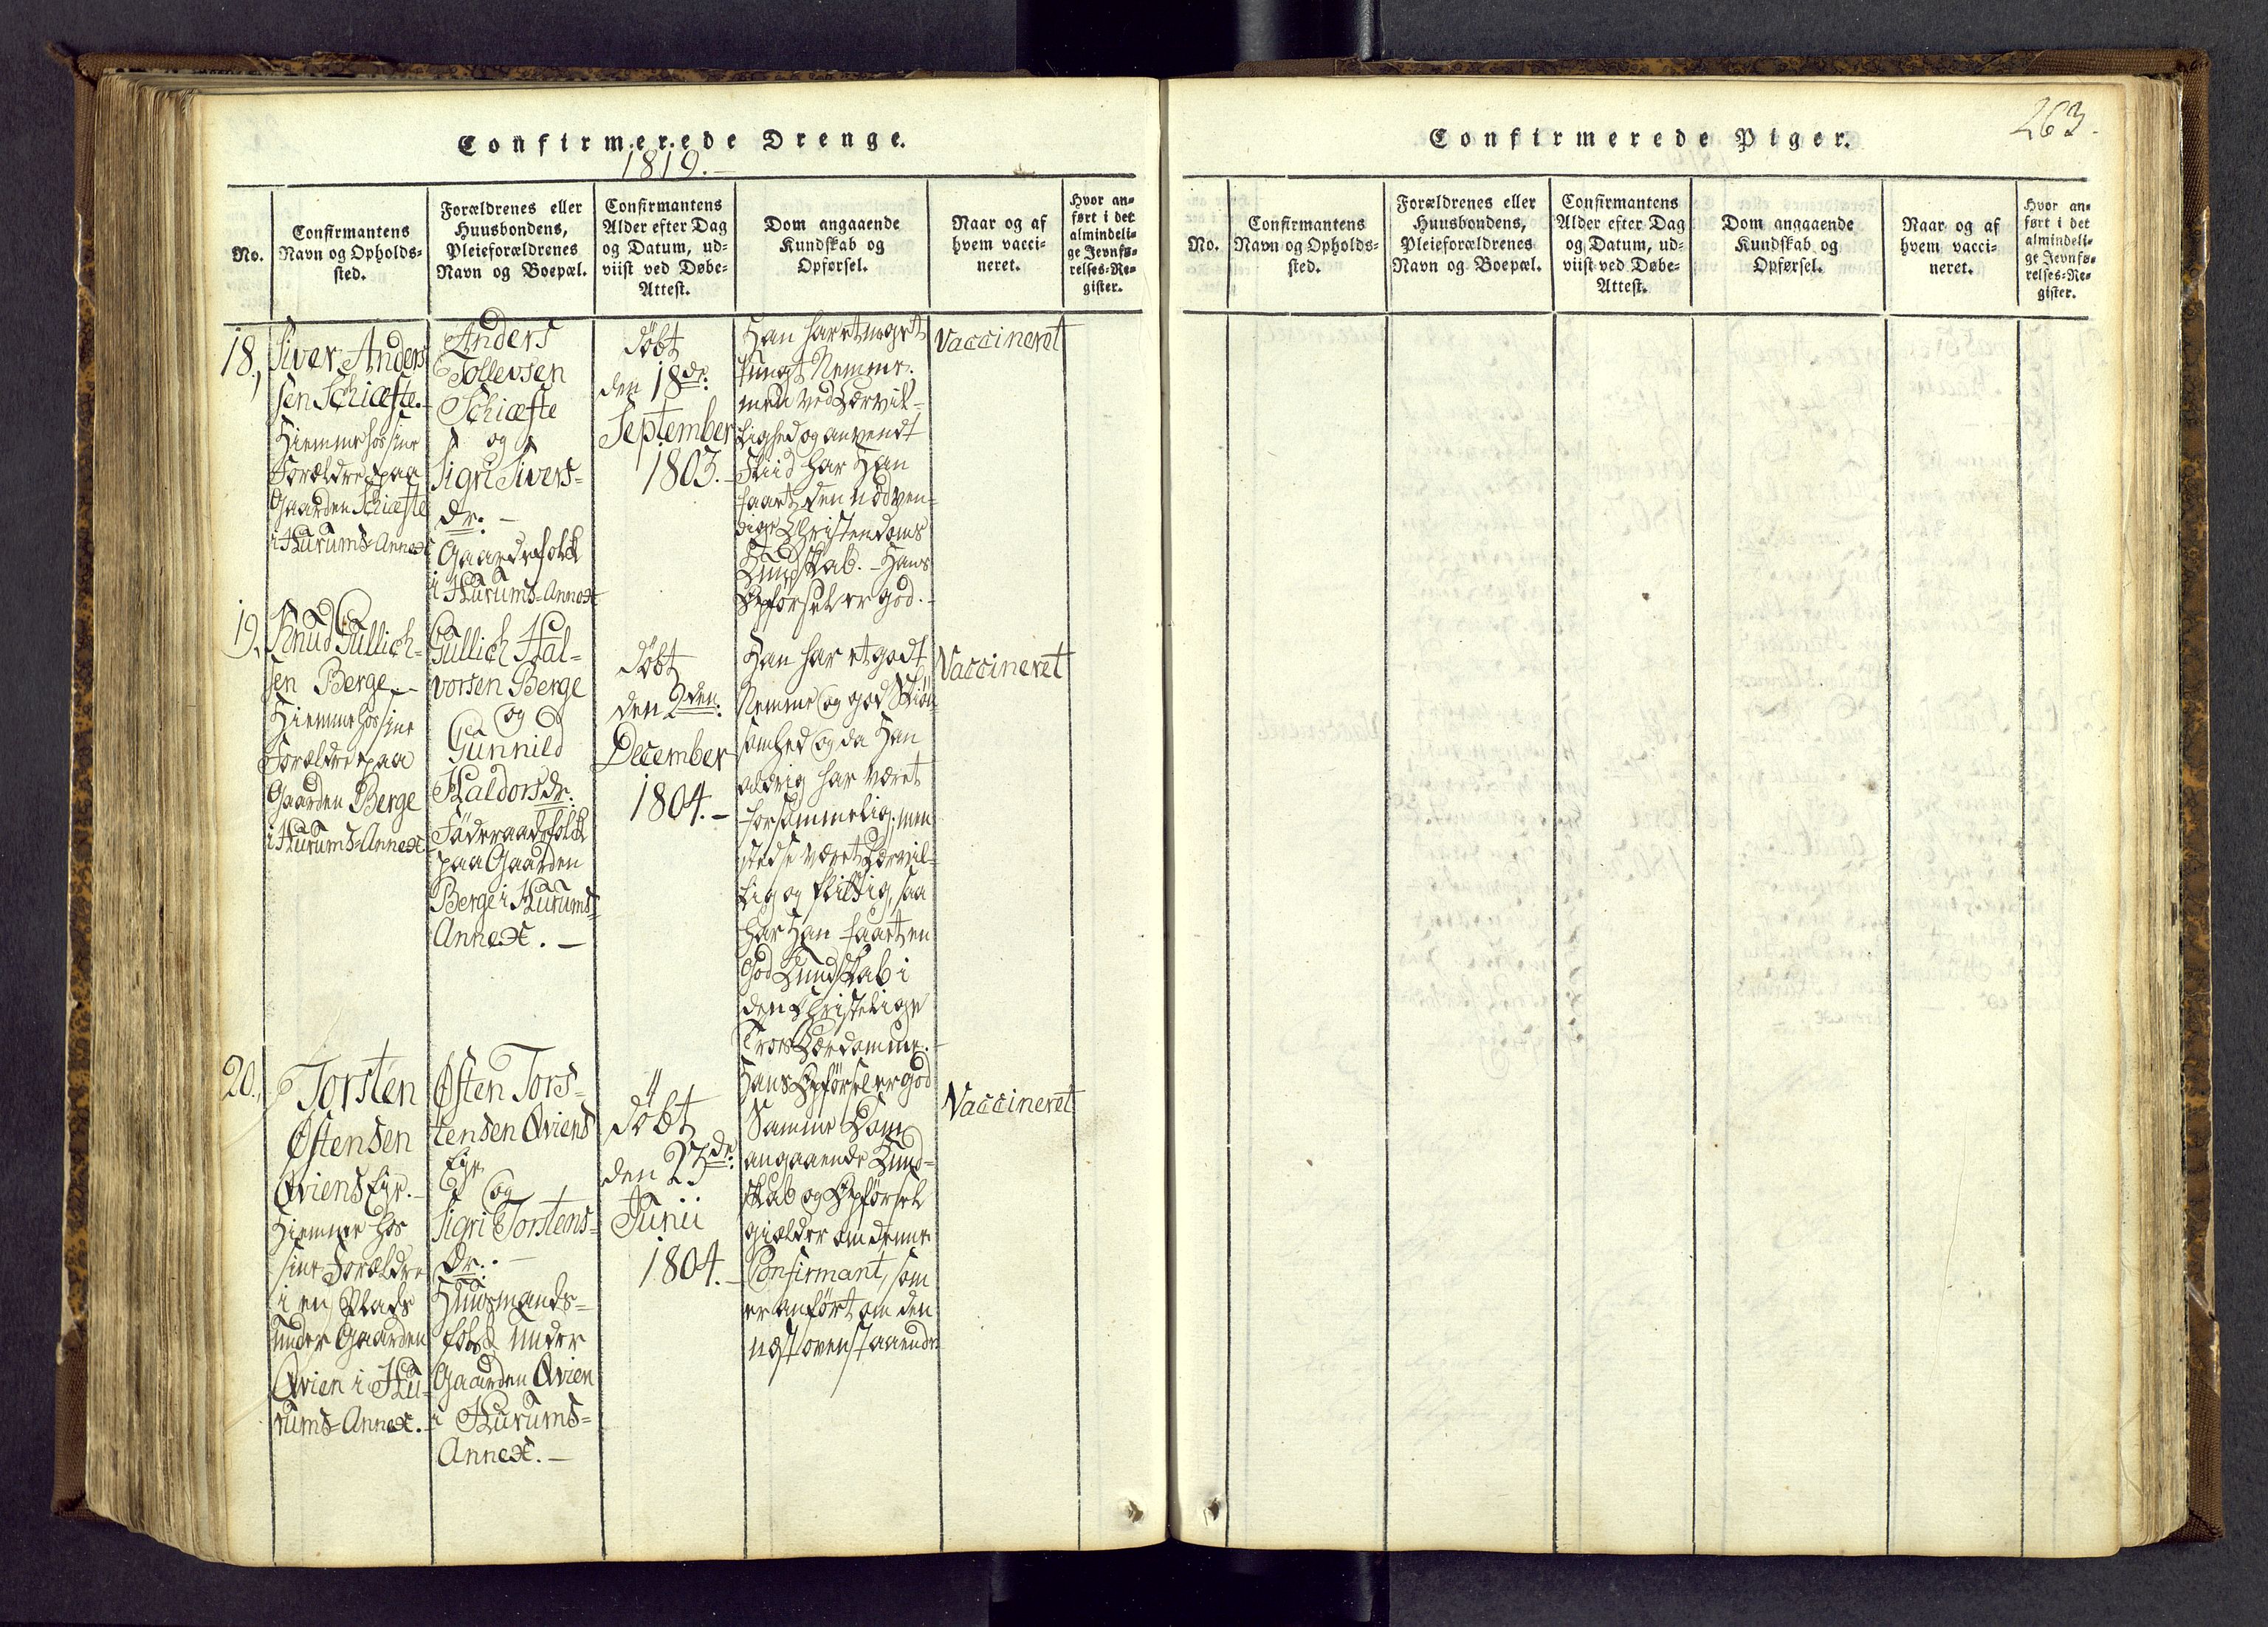 Confirmerede Drenge.
1819.-
No.
Confirmantens
Navn og Opholds-
sted.
Forældrenes eller
Huusbondens,
Pleieforældrenes
Navn og Boepæl.
Confirmantens
Alder efter Dag
og Datum, ud-
viist ved Døbe-
Attest.
Dom angaaende
Kundskab og
Opførsel.
Naar og af
hvem vacci-
neret.
Hvor an-
ført i det
almindeli-
ge Jevnfø-
relses-Re-
gister.
18.,
Siver Anders
sen Schiæfte.-
Hiemme hos sine
Forældre paa
Gaarden Schiæfte
i Hurums-Annex
Anders
Tollevsen
Schiæfte
og
Sigri Sivers-
dr:-
Gaardefolck
i Hurums-Annex
døbt
den 18de:
September
1803.-
Han har et meget
tungt Nemme,
men ved Lærvil-
lighed og anvendt
Fliid har Han
faaet den nødven-
dige Christendoms
Kundskab.- Hans
Opførsel er god.-
Vaccineret
19.
Knud Gullich-
sen Berge.-
Hiemme hos sine
Forældre paa
Gaarden Berge
i Hurums-Annex
Gullich Hal-
vorsen Berge
og
Gunnild
Haldorsdr:
Føderaadsfolck
paa Gaarden
Berge i Hurums-
Annex.-
døbt
den 2den:
December
1804.-
Han har et godt
Nemme og god Skiøn-
somhed og da Han
aldrig har været
forsømmelig, men
stedse været Lærvil-
lig og flittig, saa
har Han faaet en
god Kundskab i
den Christelige
Troes Lærdomme.-
Hans Opførsel er god
Vaccineret
20.,
Torsten
Østensen
Qviens Eje.-
Hiemme hos
sine Forældre
i en Plads
under Gaarden
Qvien i Hu-
rums-Annex.-
Østen Tors-
tensen Qviens
Eje
og
Sigri Torstens-
dr:.-
Huusmands-
folck under
Gaarden Qvien
i Hurums-
Annex.-
døbt
den 23de:
Junii
1804.-
Samme Dom
angaaende Kund-
skab og Opførsel
gielder om denne
Confirmant, som
er anført om den
næst ovenstaaende
Vaccineret
263.
Confirmerede Piger.
No.
Confirmantens
Navn og Opholds-
sted.
Forældrenes eller
Huusbondens,
Pleieforældrenes
Navn og Boepæl.
Confirmantens
Alder efter Dag
og Datum, ud-
viist ved Døbe-
Attest.
Dom angaaende
Kundskab og
Opførsel.
Naar og af
hvem vacci-
neret.
Hvor an-
ført i det
almindeli-
ge Jevnfø-
relses-Re-
gister.